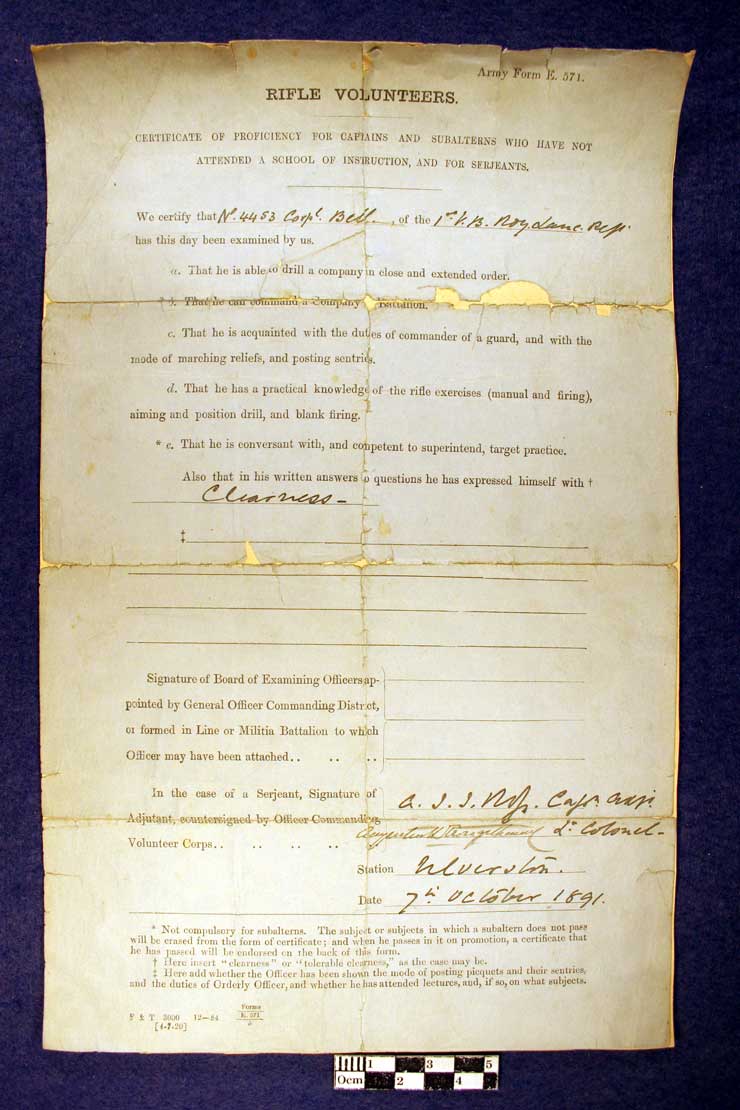 Army Form E. 571.
RIFLE VOLUNTEERS.
CERTIFICATE OF PROFICIENCY FOR CAPTAINS AND SUBALTERNS WHO HAVE NOT
ATTENDED A SCHOOL OF INSTRUCTION, AND FOR SERJEANTS.
We certify that No. 4453 Corpl. Bell. , of the 1st V.B. Roy Lanc. Regt.
has this day been examined by us.
a. That he is able to drill a company in close and extended order.
* b. That he can command a Company Battalion.
c. That he is acquainted with the duties of commander of a guard, and with the
mode of marching reliefs, and posting sentries.
d. That he has a practical knowledge of the rifle exercises (manual and firing),
aiming and position drill, and blank firing.
* e. That he is conversant with, and competent to superintend, target practice.
Also that in his written answers to questions he has expressed himself with †
Clearness –
‡
Signature of Board of Examining Officers ap-
pointed by General Officer Commanding District,
or formed in Line or Militia Battalion to which
Officer may have been attached.. .. ..
In the case of a Serjeant, Signature of
Adjutant, countersigned by Officer Commanding
Volunteer Corps.. .. .. ..
Capt. Adjt
Lt. Colonel –
Station Ulverston.
Date 7th October 1891.
* Not compulsory for subalterns. The subject or subjects in which a subaltern does not pass
will be erased from the form of certificate; and when he passes in it on promotion, a certificate that
he has passed will be endorsed on the back of this form.
† Here insert "clearness" or "tolerable clearness," as the case may be.
‡ Here add whether the Officer has been shown the mode of posting picquets and their sentries,
and the duties of Orderly Officer, and whether he has attended lectures, and, if so, on what subjects.
F & T 3000 12—84 Forms
E. 571
[4-7-20]
0cm 1 2 3 4 5